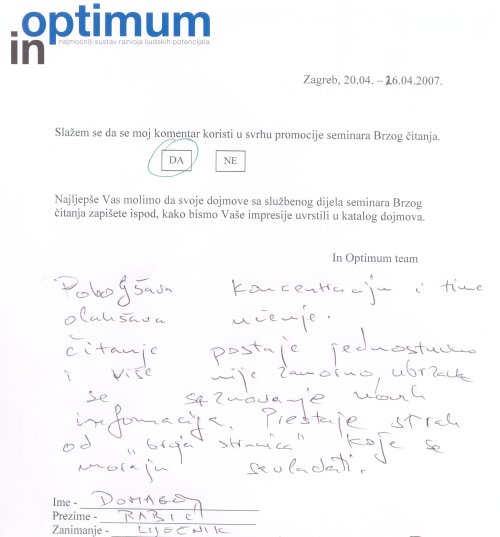 in optimum
najmoćniji sustav razvoja ljudskih potencijala
Zagreb, 20.04. – 26.04.2007.
Slažem se da se moj komentar koristi u svrhu promocije seminara Brzog čitanja.
DA NE
Najljepše Vas molimo da svoje dojmove sa službenog dijela seminara Brzog
čitanja zapišete ispod, kako bismo Vaše impresije uvrstili u katalog dojmova.
In Optimum team
Poboljšava koncentraciju i time
olakšava učenje.
čitanje postaje jednostavno
i više nije zamorno, ubrzava
se saznavanje novih
informacija. Prestaje strah
od "broja stranica" koje se
moraju savladati.
Ime - DOMAGOJ
Prezime - RABIĆ
Zanimanje - LIJEČNIK